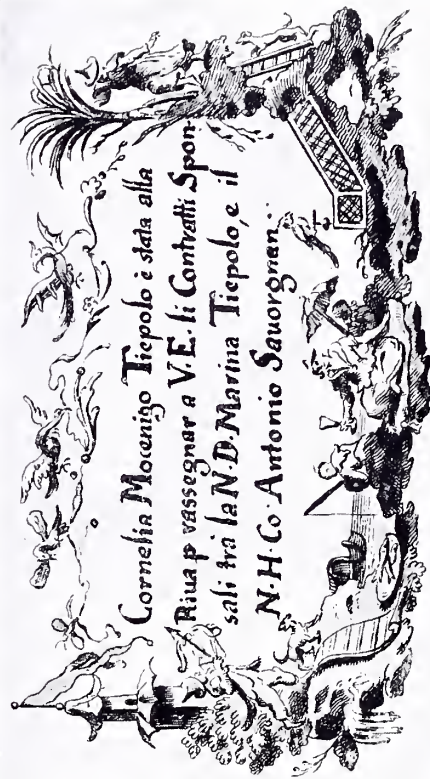 Cornelia Mocenigo Tiepolo è stata alla
Riua p rassegnar a V.E. li Contratti Spon-
sali trà la N.D. Marina Tiepolo, e il
N.H. Co. Antonio Sauorgnan.